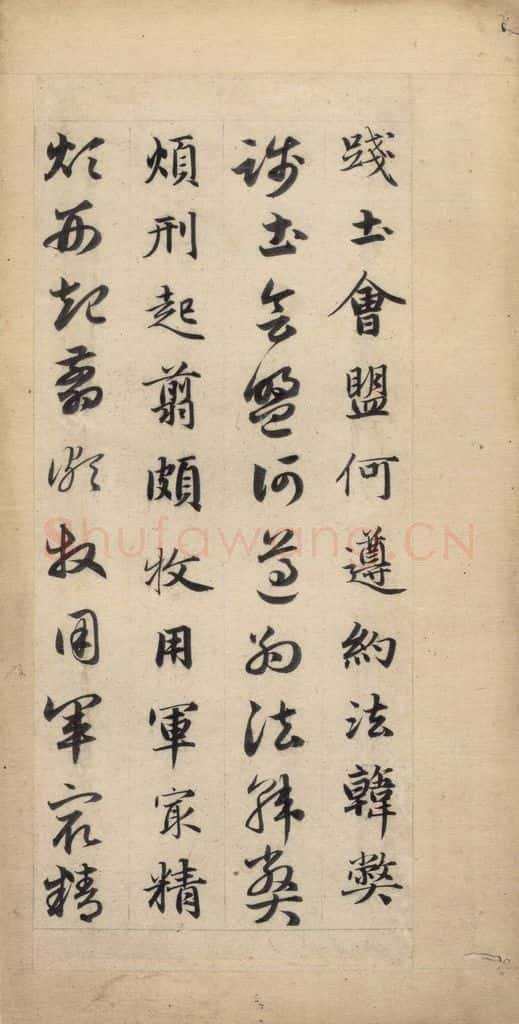 踐土會盟何遵約法韓獘
踐土會盟何遵約法韓獘
煩刑起翦頗牧用軍㝡精
煩刑起翦頗牧用軍㝡精
Shufawang.CN